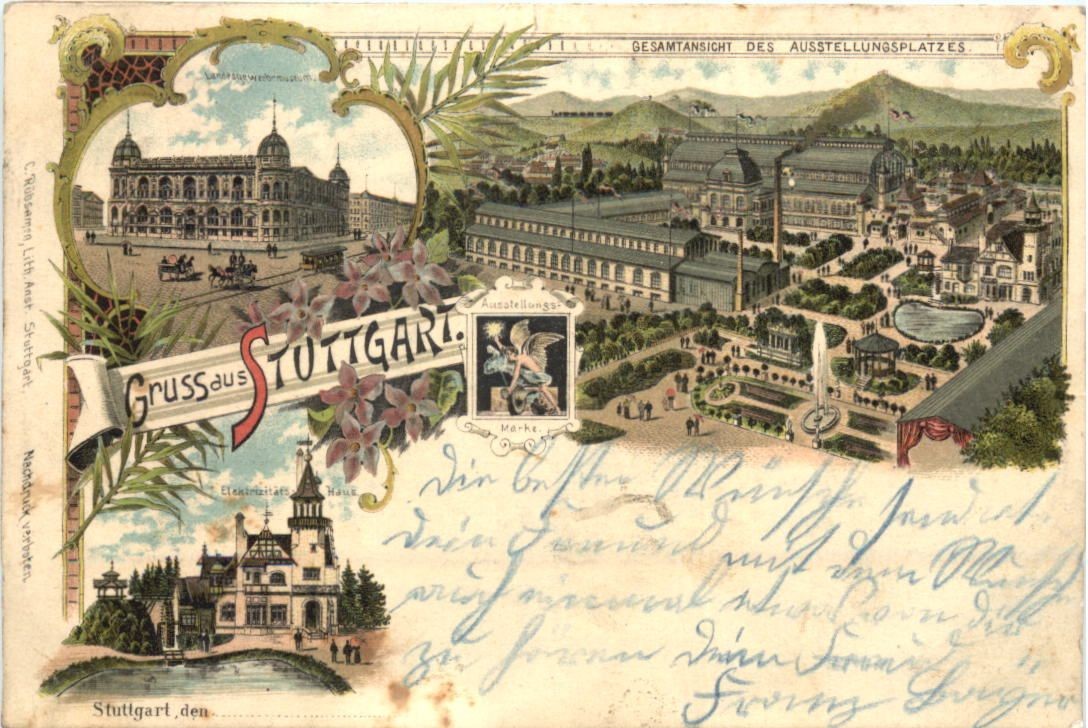 GESAMTANSICHT DES AUSSTELLUNGSPLATZES.
Landesgewerbemuseum.
C. Rübsamen, Lith. Anst. Stuttgart. Nachdruck verboten.
Gruss aus STUTTGART.
Ausstellungs-
Marke.
Elektrizitäts Haus.
Die besten Wünsche sendet
dein Freund mit dem Wunsche
auch einmal etwas von dir
zu hören Dein Freund
Franz
Stuttgart, den